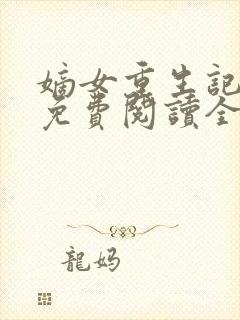 嫡女重生記
免費閱讀全
龍媽